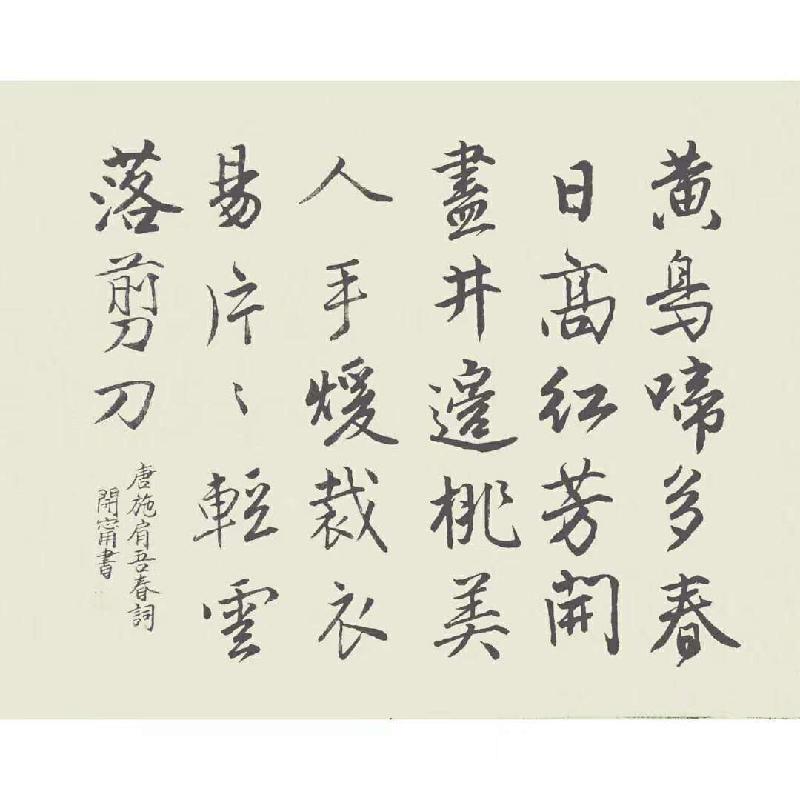 黄鳥啼多春
日高紅芳開
盡井邊桃美
人手煖裁衣
易片〻輕雲
落剪刀
唐施肩吾春詞
開甯書